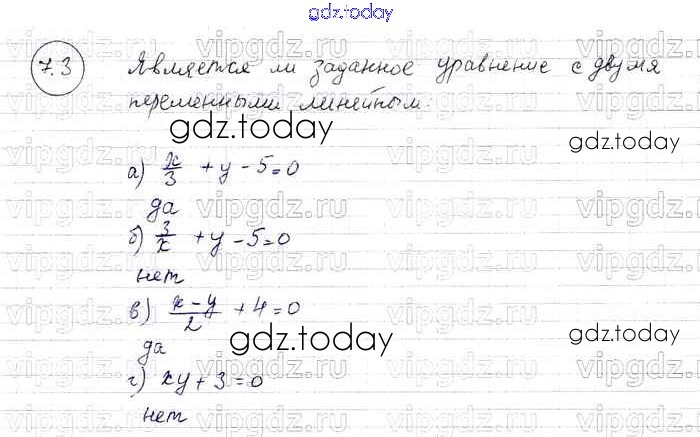 gdz.today
7.3 Является ли заданное уравнение с двумя
переменными линейным.
gdz.today
а) x/3 + y - 5 = 0
да
б) 3/x + y - 5 = 0
нет
в) x - y/2 + 4 = 0
да
gdz.today
gdz.today
г) xy + 3 = 0
нет